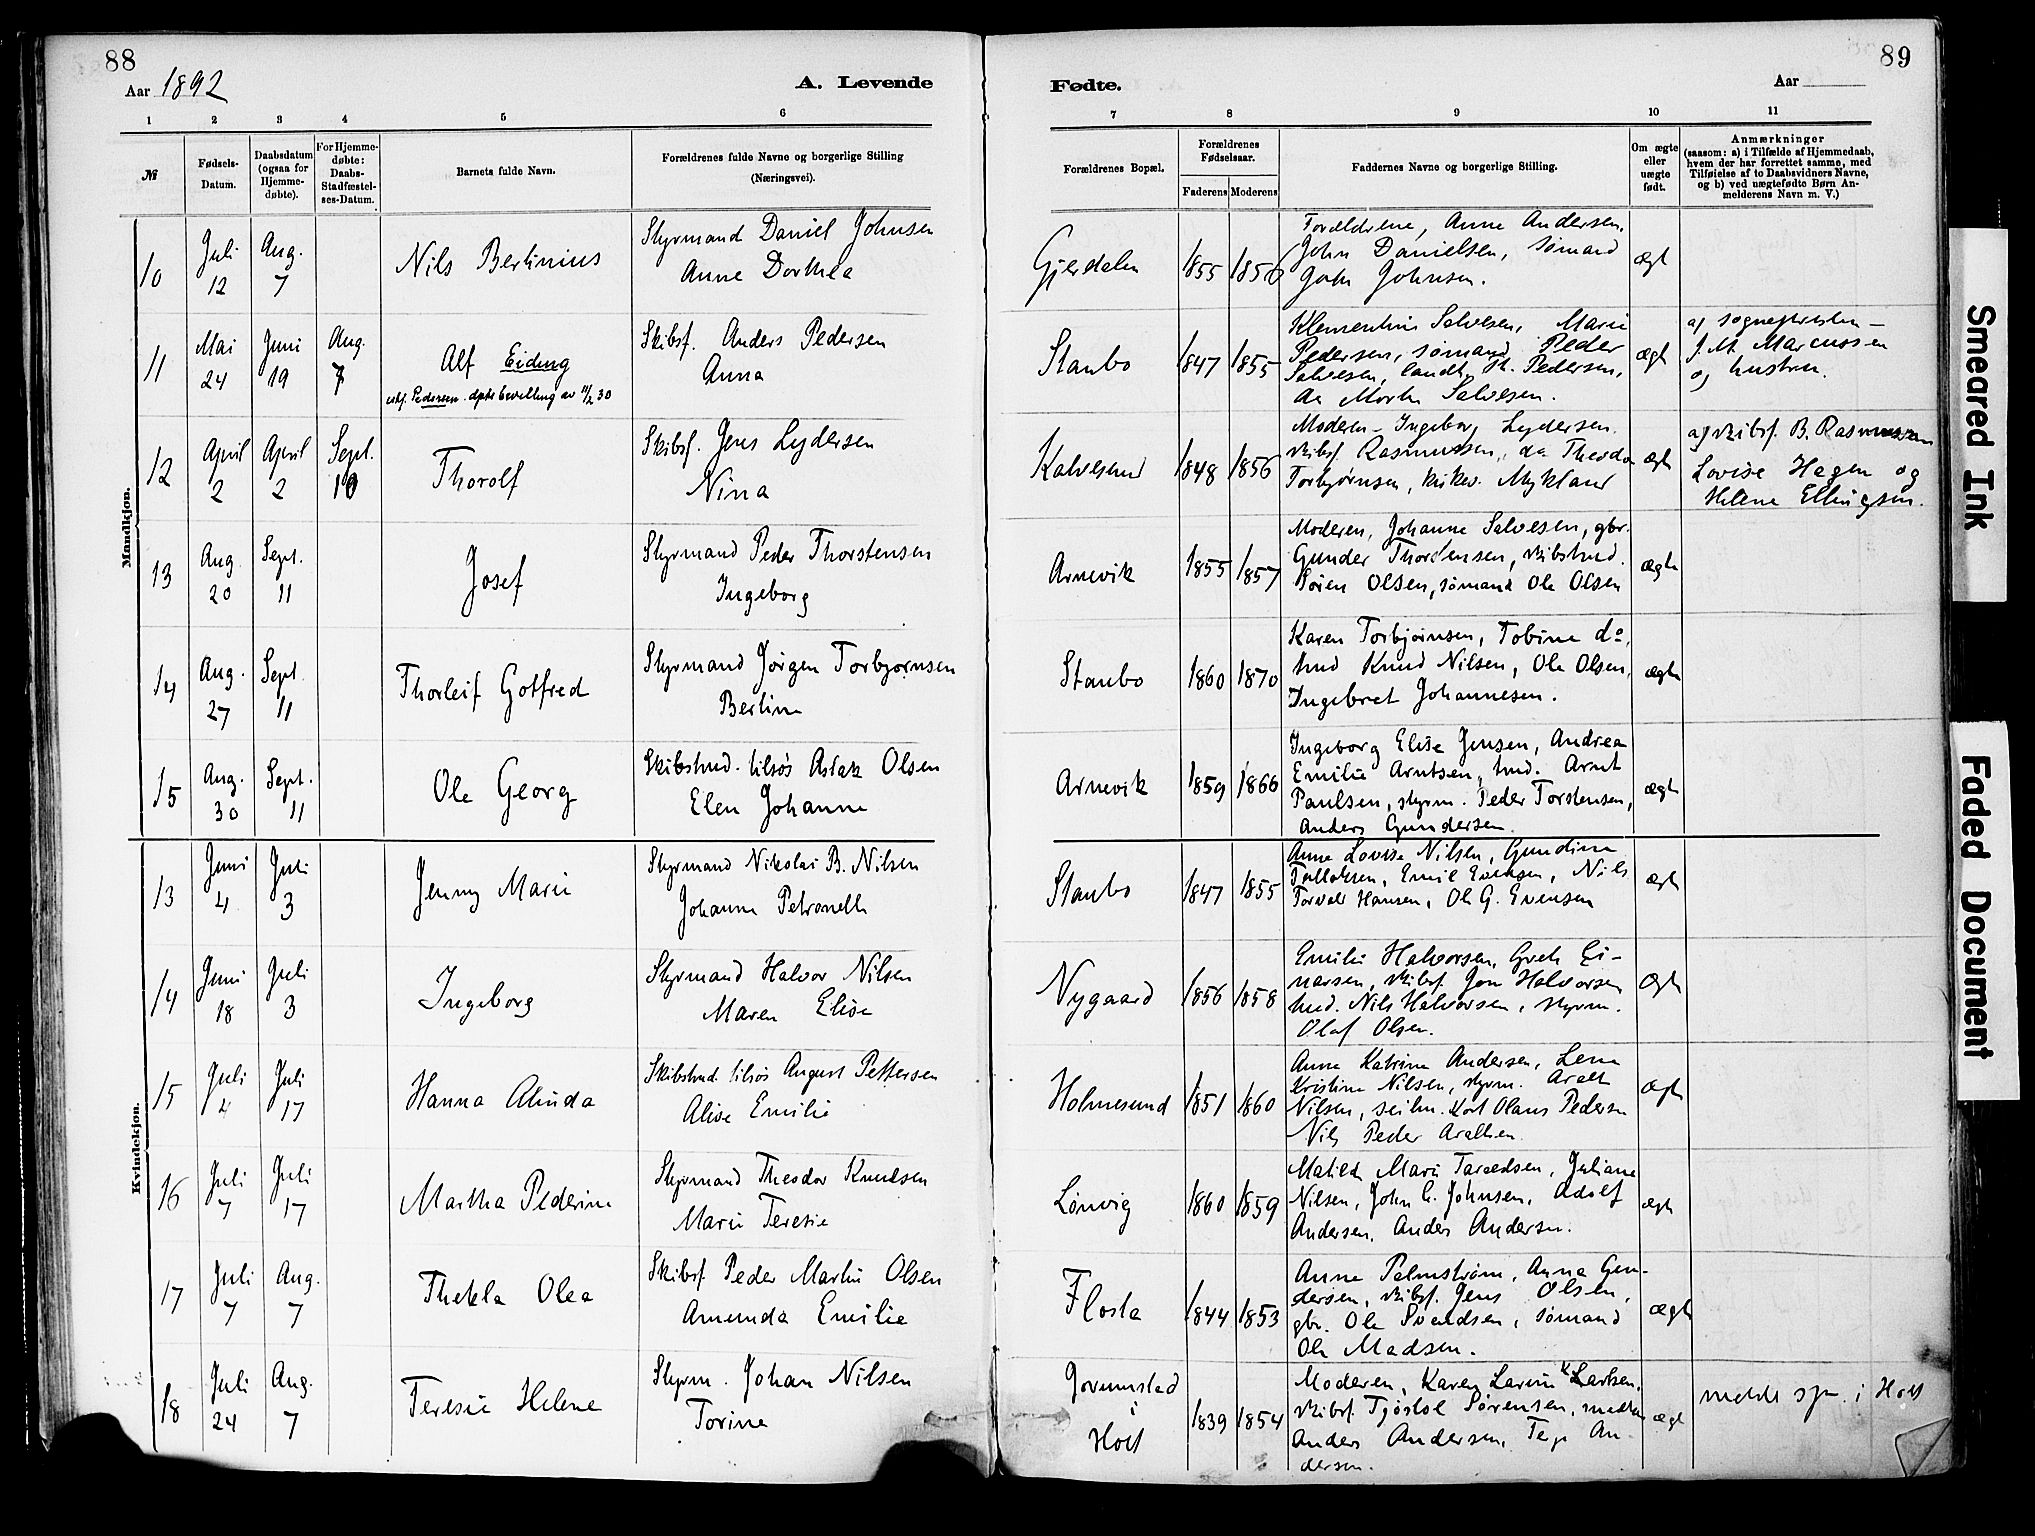 88
Aar 1892
A. Levende
Fødte.
Aar
89
1 2 3 4 5 6 7 8 9 10 11
№
Fødsels-
Datum.
Daabsdatum
(ogsaa for
Hjemme-
døbte).
For Hjemme-
døbte:
Daabs-
Stadfæstel-
ses-Datum.
Barnets fulde Navn.
Forældrenes fulde Navne og borgerlige Stilling
(Næringsvei).
Forældrenes Bopæl.
Forældrenes
Fødselsaar.
Faderens Moderens
Faddernes Navne og borgerlige Stilling.
Om ægte
eller
uægte
født.
Anmærkninger
(saasom: a) i Tilfælde af Hjemmedaab,
hvem der har forrettet samme, med
Tilføielse af to Daabsvidners Navne,
og b) ved uægtefødte Børn An-
melderens Navn m. V.)
Mandkjøn.
10
Juli
12
Aug.
7
Nils Bertinius
Styrmand Daniel Johnsen
Anne Dorthea
Gjerdalen
1855 1856
Forældrene, Anne Andersen,
John Danielsen, sømand
John Johnsen.
ægt
11
Mai
24
Juni
19
Aug.
7
Alf Eiding
Pedersen dpts bevilling av 11/2 30
Skibsf. Anders Pedersen
Anna
Staubo
1847 1855
Klementine Salvesen, Marie
Pedersen, sømand Peder
Salvesen, landh. Pedersen,
do Morten Salvesen.
ægt
af sognepresten
J. M. Marcussen
og hustru.
12
April
2
April
2
Sept.
10
Thorolf
Skibsf. Jens Lydersen
Nina
Kalvesund
1848 1856
Moderen, Ingeborg Lydersen.
skibsf. Rasmussen, do Theodor
Torbjørnsen, kirkes. Mykland
ægt
af skibsf. B. Rasmussen
Lovise Hagen og
Helene Ellingsen.
13
Aug.
20
Sept.
11
Josef
Styrmand Peder Thorstensen
Ingeborg
Arnevik
1855 1857
Moderen, Johanne Salvesen, gbr.
Gunder Thorstensen, skibstmd.
Søren Olsen, sømand Ole Olsen
ægte
14
Aug.
27
Sept.
11
Thorleif Gotfred
Styrmand Jørgen Torbjørnsen
Berline
Staubo
1860 1870
Karen Torbjørnsen, Tobine do,
tmd Knud Nilsen, Ole Olsen,
Ingebret Johannesen.
ægte
15
Aug.
30
Sept.
11
Ole Georg
Skibstmd. tilsøs Aslak Olsen
Elen Johanne
Arnevik
1859 1866
Ingeborg Elise Jensen, Andrea
Emilie Arntsen, tmd. Arnt
Paulsen, styrm. Peder Torstensen,
Anders Gundersen.
ægte
Kvindekjøn.
13
Juni
4
Juli
3
Jenny Marie
Styrmand Nikolai B. Nilsen
Johanne Petronelle
Staubo
1847 1855
Anne Lovise Nilsen, Gundine
Tellefsen, Emil Evensen, Nils
Torvald Hansen, Ole G. Evensen
ægt
14
Juni
18
Juli
3
Ingeborg
Styrmand Halvor Nilsen
Maren Elise
Nygaard
1856 1858
Emilie Halvorsen, Grete Ei-
narsen, skibsf. Jon Halvorsen
tmd. Nils Halvorsen, styrm.
Olaf Olsen.
ægte
15
Juli
4
Juli
17
Hanna Alinda
Skibstmd. tilsøs August Pettersen
Alise Emilie
Holmesund
1851 1860
Anne Katrine Andersen, Lena
Kristine Nilsen, styrm. Aralt
Nilsen, seilm. Karl Olaus Pedersen
Nils Peder Araltsen.
ægte
16
Juli
7
Juli
17
Martha Pederine
Styrmand Theodor Knudsen
Marie Teresie
Lønvig
1860 1859
Matilda Marie Taraldsen, Juliane
Nilsen, John C. Johnsen, Adolf
Andersen, Anders Andersen.
ægte
17
Juli
7
Aug.
7
Thekla Olea
Skibsf. Peder Martin Olsen
Amunda Emilie
Flosta
1844 1853
Anne Palmstrøm, Anna Gun-
dersen, skibsf. Jens Olsen,
gbr. Ole Svendsen, sømand
Ole Madsen.
ægte
18
Juli
24
Aug.
7
Teresie Helene
Styrm. Johan Nilsen
Torine
i
Holt
1839 1854
Moderen, Karen Larsen,
skibsf. Tjøstol Sørensen,
Anders Andersen, An-
dersen.
ægt
i Holt
Smeared Ink
Faded Document